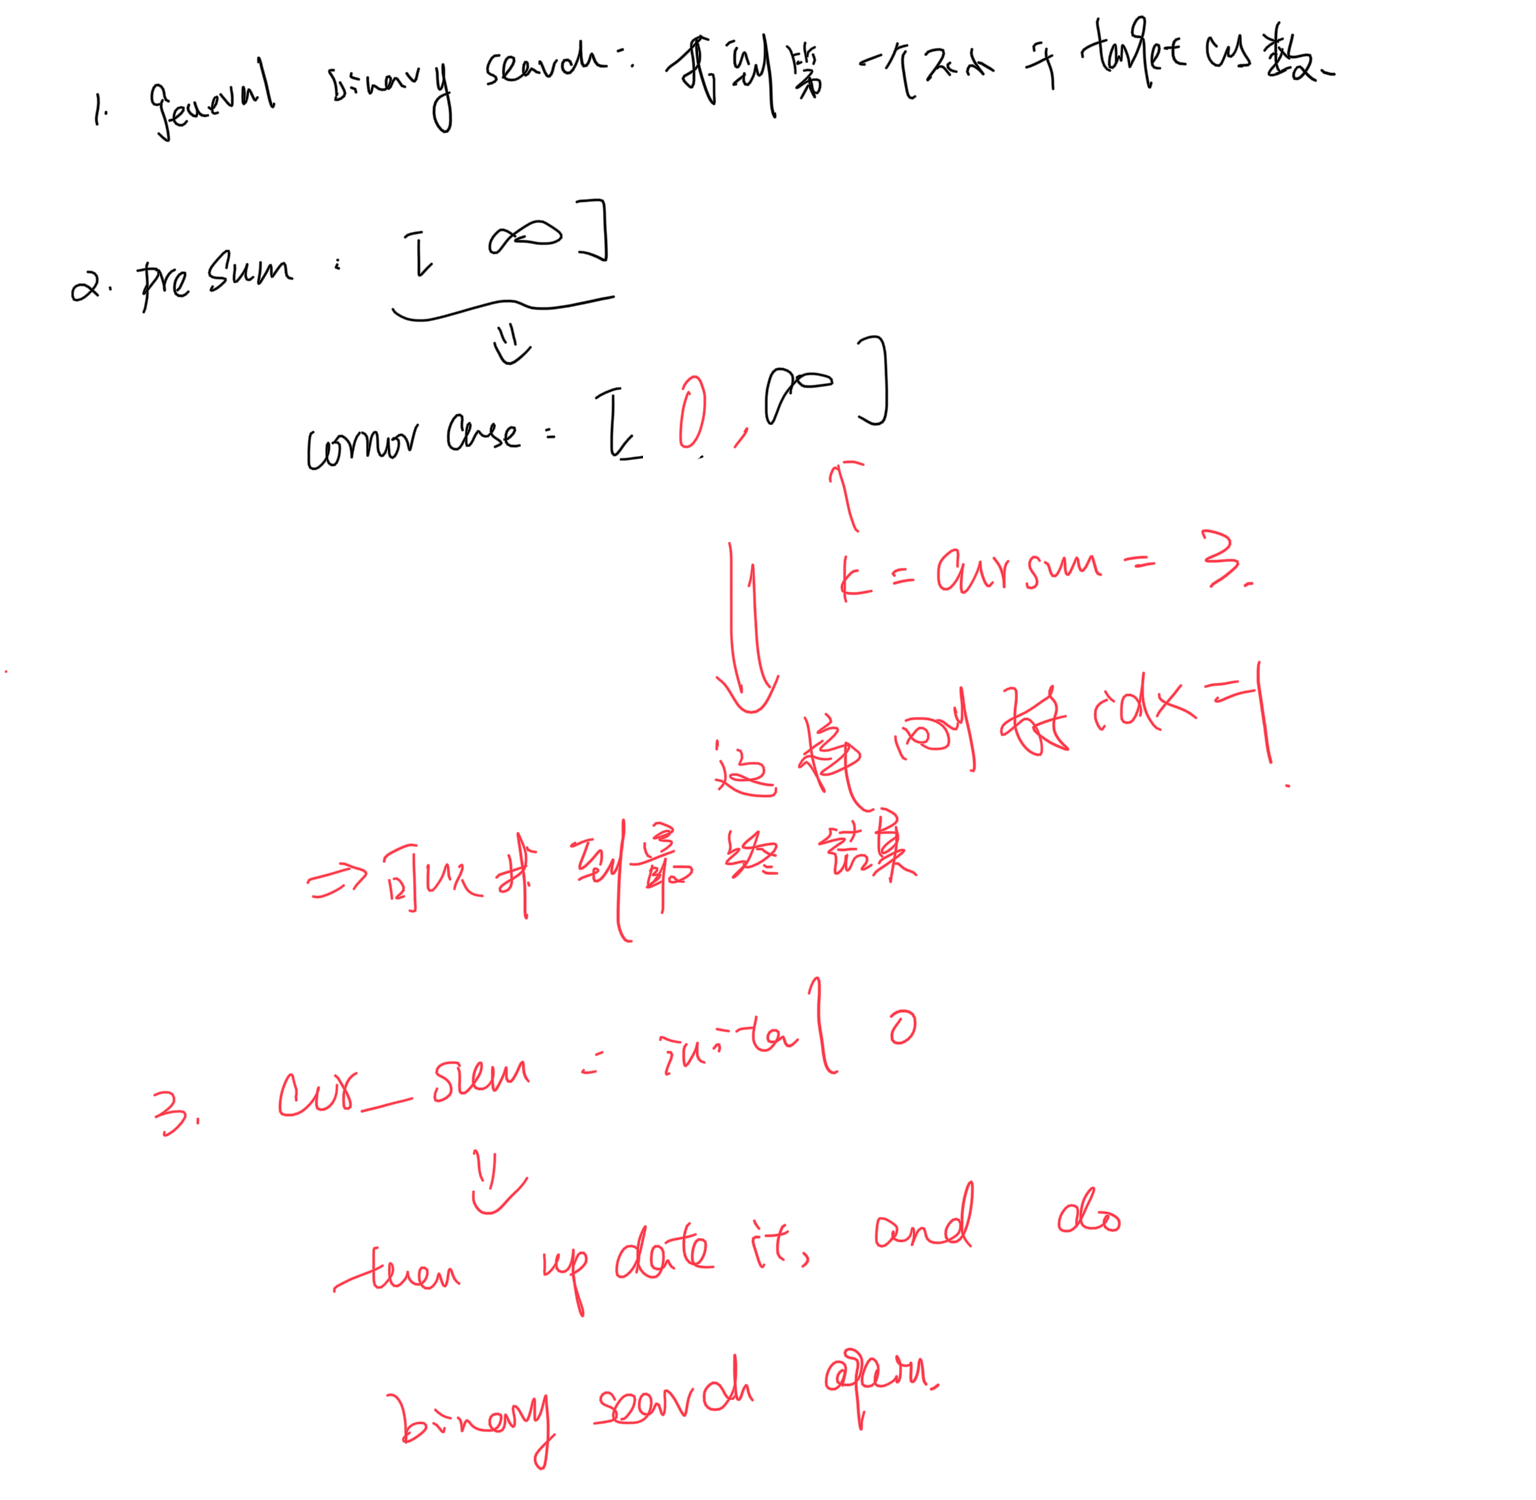 1. general binary search: 找到第一个不小于 target 的数.
2. pre sum: [ ∞ ]
cornor case = [ 0, ∞ ]
k = cur sum = 3.
这样 回 idx = 1.
⇒ 可以找到最终结果
3. cur_sum = inital 0
then update it, and do
binary search again.